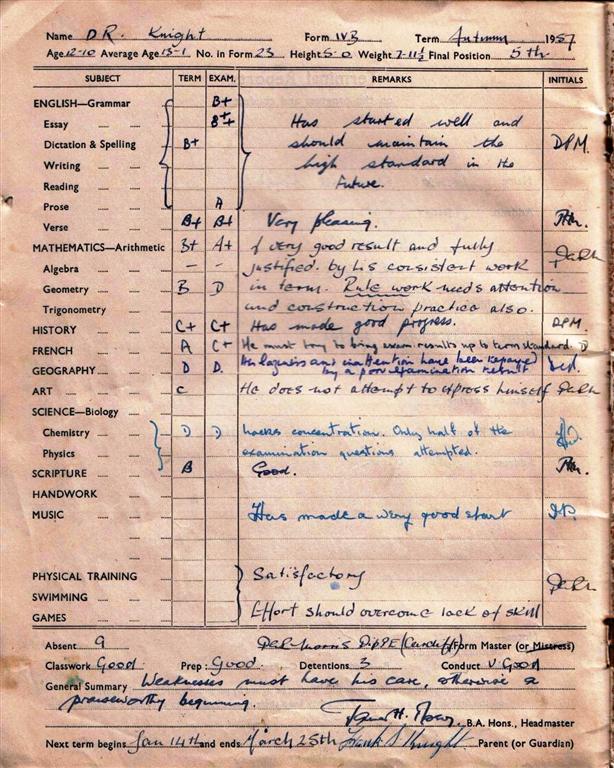 Name D R. Knight Form IVB Term Autumn 1957
Age 12-10 Average Age 13-1 No. in Form 23 Height 5-0 Weight 7-11½ Final Position 5th
SUBJECT TERM EXAM. REMARKS INITIALS
ENGLISH—Grammar B+
Essay B++ Has started well and
Dictation & Spelling B+ should maintain the DPM.
Writing high standard in the
Reading future.
Prose A
Verse B+ B+ Very pleasing.
MATHEMATICS—Arithmetic B+ A+ A very good result and fully
Algebra – – justified by his consistent work
Geometry B D in term. Rule work needs attention
Trigonometry and construction practice also.
HISTORY C+ C+ Has made good progress. DPM.
FRENCH A C+ He must try to bring exam results up to term standard.
GEOGRAPHY D D. His laziness and inattention have been repayed
by a poor examination result
ART C He does not attempt to express himself
SCIENCE—Biology
Chemistry D D Lacks concentration. Only half of the
Physics examination questions attempted.
SCRIPTURE B Good.
HANDWORK
MUSIC Has made a very good start
PHYSICAL TRAINING Satisfactory
SWIMMING
GAMES Effort should overcome lack of skill
Absent 9 Morris DipPE (Cardiff) Form Master (or Mistress)
Classwork Good Prep: Good. Detentions 3 Conduct V. Good
General Summary Weaknesses must have his care, otherwise a
praiseworthy beginning.
B.A. Hons., Headmaster
Next term begins Jan 14th and ends March 25th Frank S Knight Parent (or Guardian)